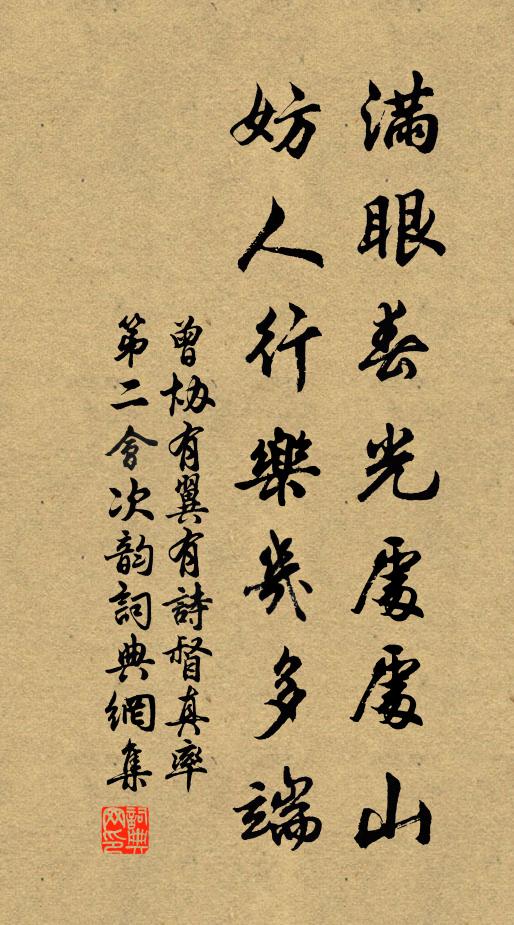 滿眼春光處處山
妨人行樂幾多端
曾協有翼有詩督真率
第二會次韵詞典網集
詞典網印